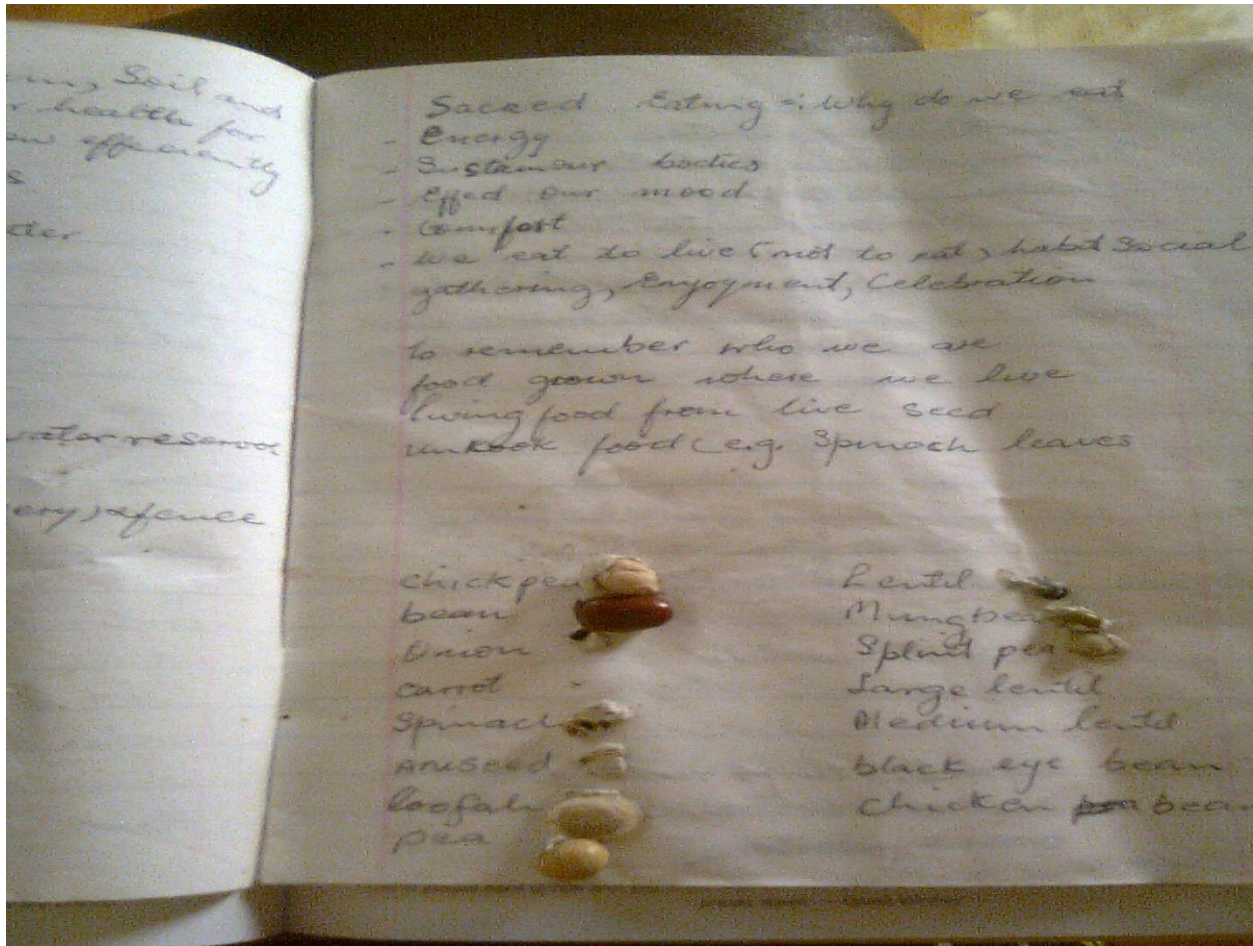 Soil and
health for
efficiently
water reserved
Sacred Eating -: Why do we eat
- Energy
- Sustain our bodies
- Effed our mood
- Comfort
- we eat to live & not to eat, habit Social
gathering, Enjoyment, Celebration
to remember who we are
food grown where we live
living food from live seed
unkook food (e.g. Spinach leaves
chickpea
bean
Onion
carrot
Spinach
Aniseed
loofah
pea
Lentil
Mungbea
Splint pea
Large lentil
Medium lentil
black eye bean
Chicken bea